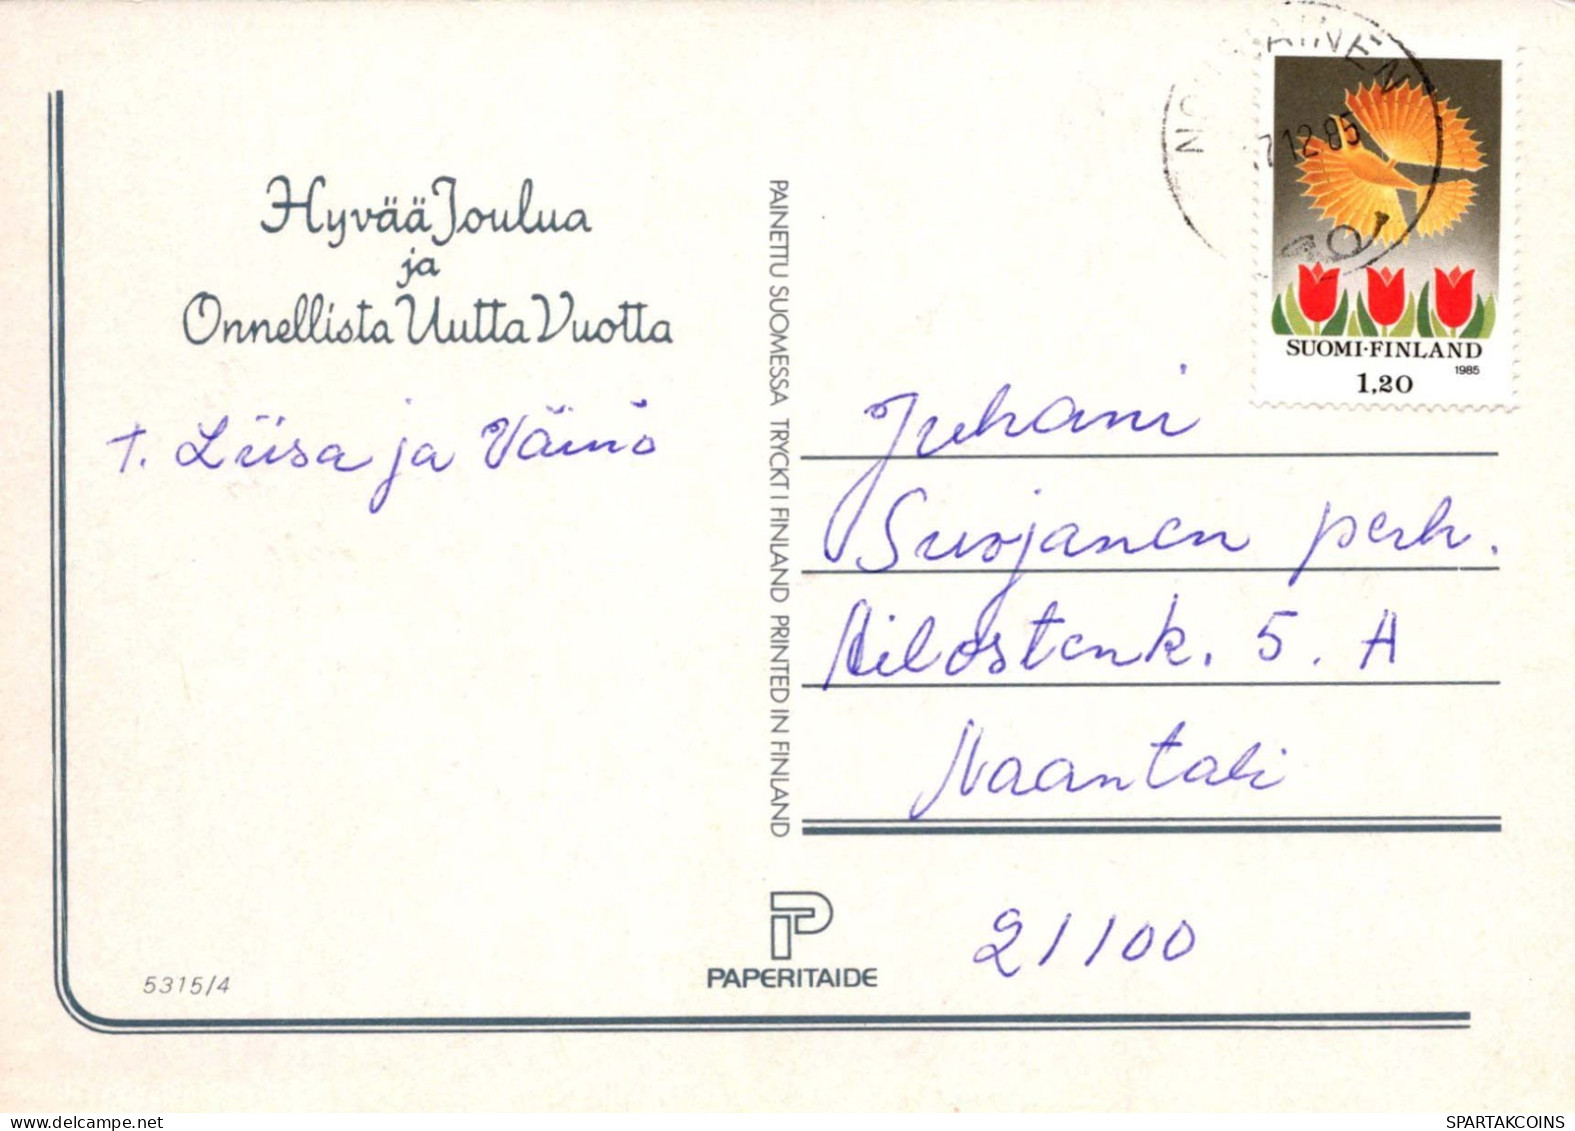 Hyvää Joulua
ja
Onnellista Uutta Vuotta
T. Liisa ja Väinö
5315/4
PAINETTU SUOMESSA TRYCKT I FINLAND PRINTED IN FINLAND
PAPERITAIDE
12.85
SUOMI-FINLAND
1985
1,20
Juhani
Suojanen perh.
5. A
Naantali
21100
delcampe.net
SPARTAKCOINS